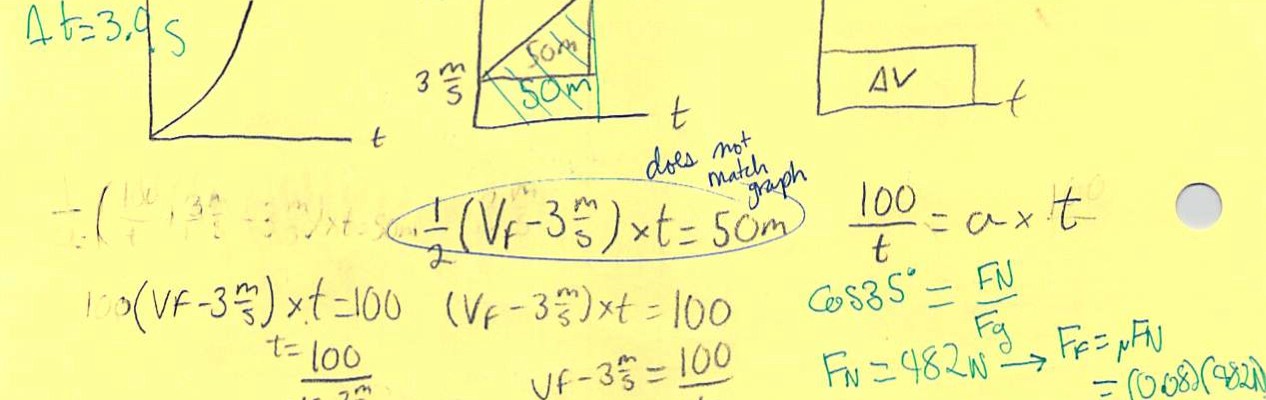 Δt=3.9 s
50m
3 m/s
50m
t
t
ΔV
t
does not
match
graph
1/2 (Vf-3 m/s) ×t= 50m
100/t = a × t
(Vf-3 m/s) ×t=100
(Vf-3 m/s)×t = 100
cos35° = FN/Fg
t= 100
Vf-3 m/s = 100
FN = 482N → FF= μFN
= (0.08)(482N)